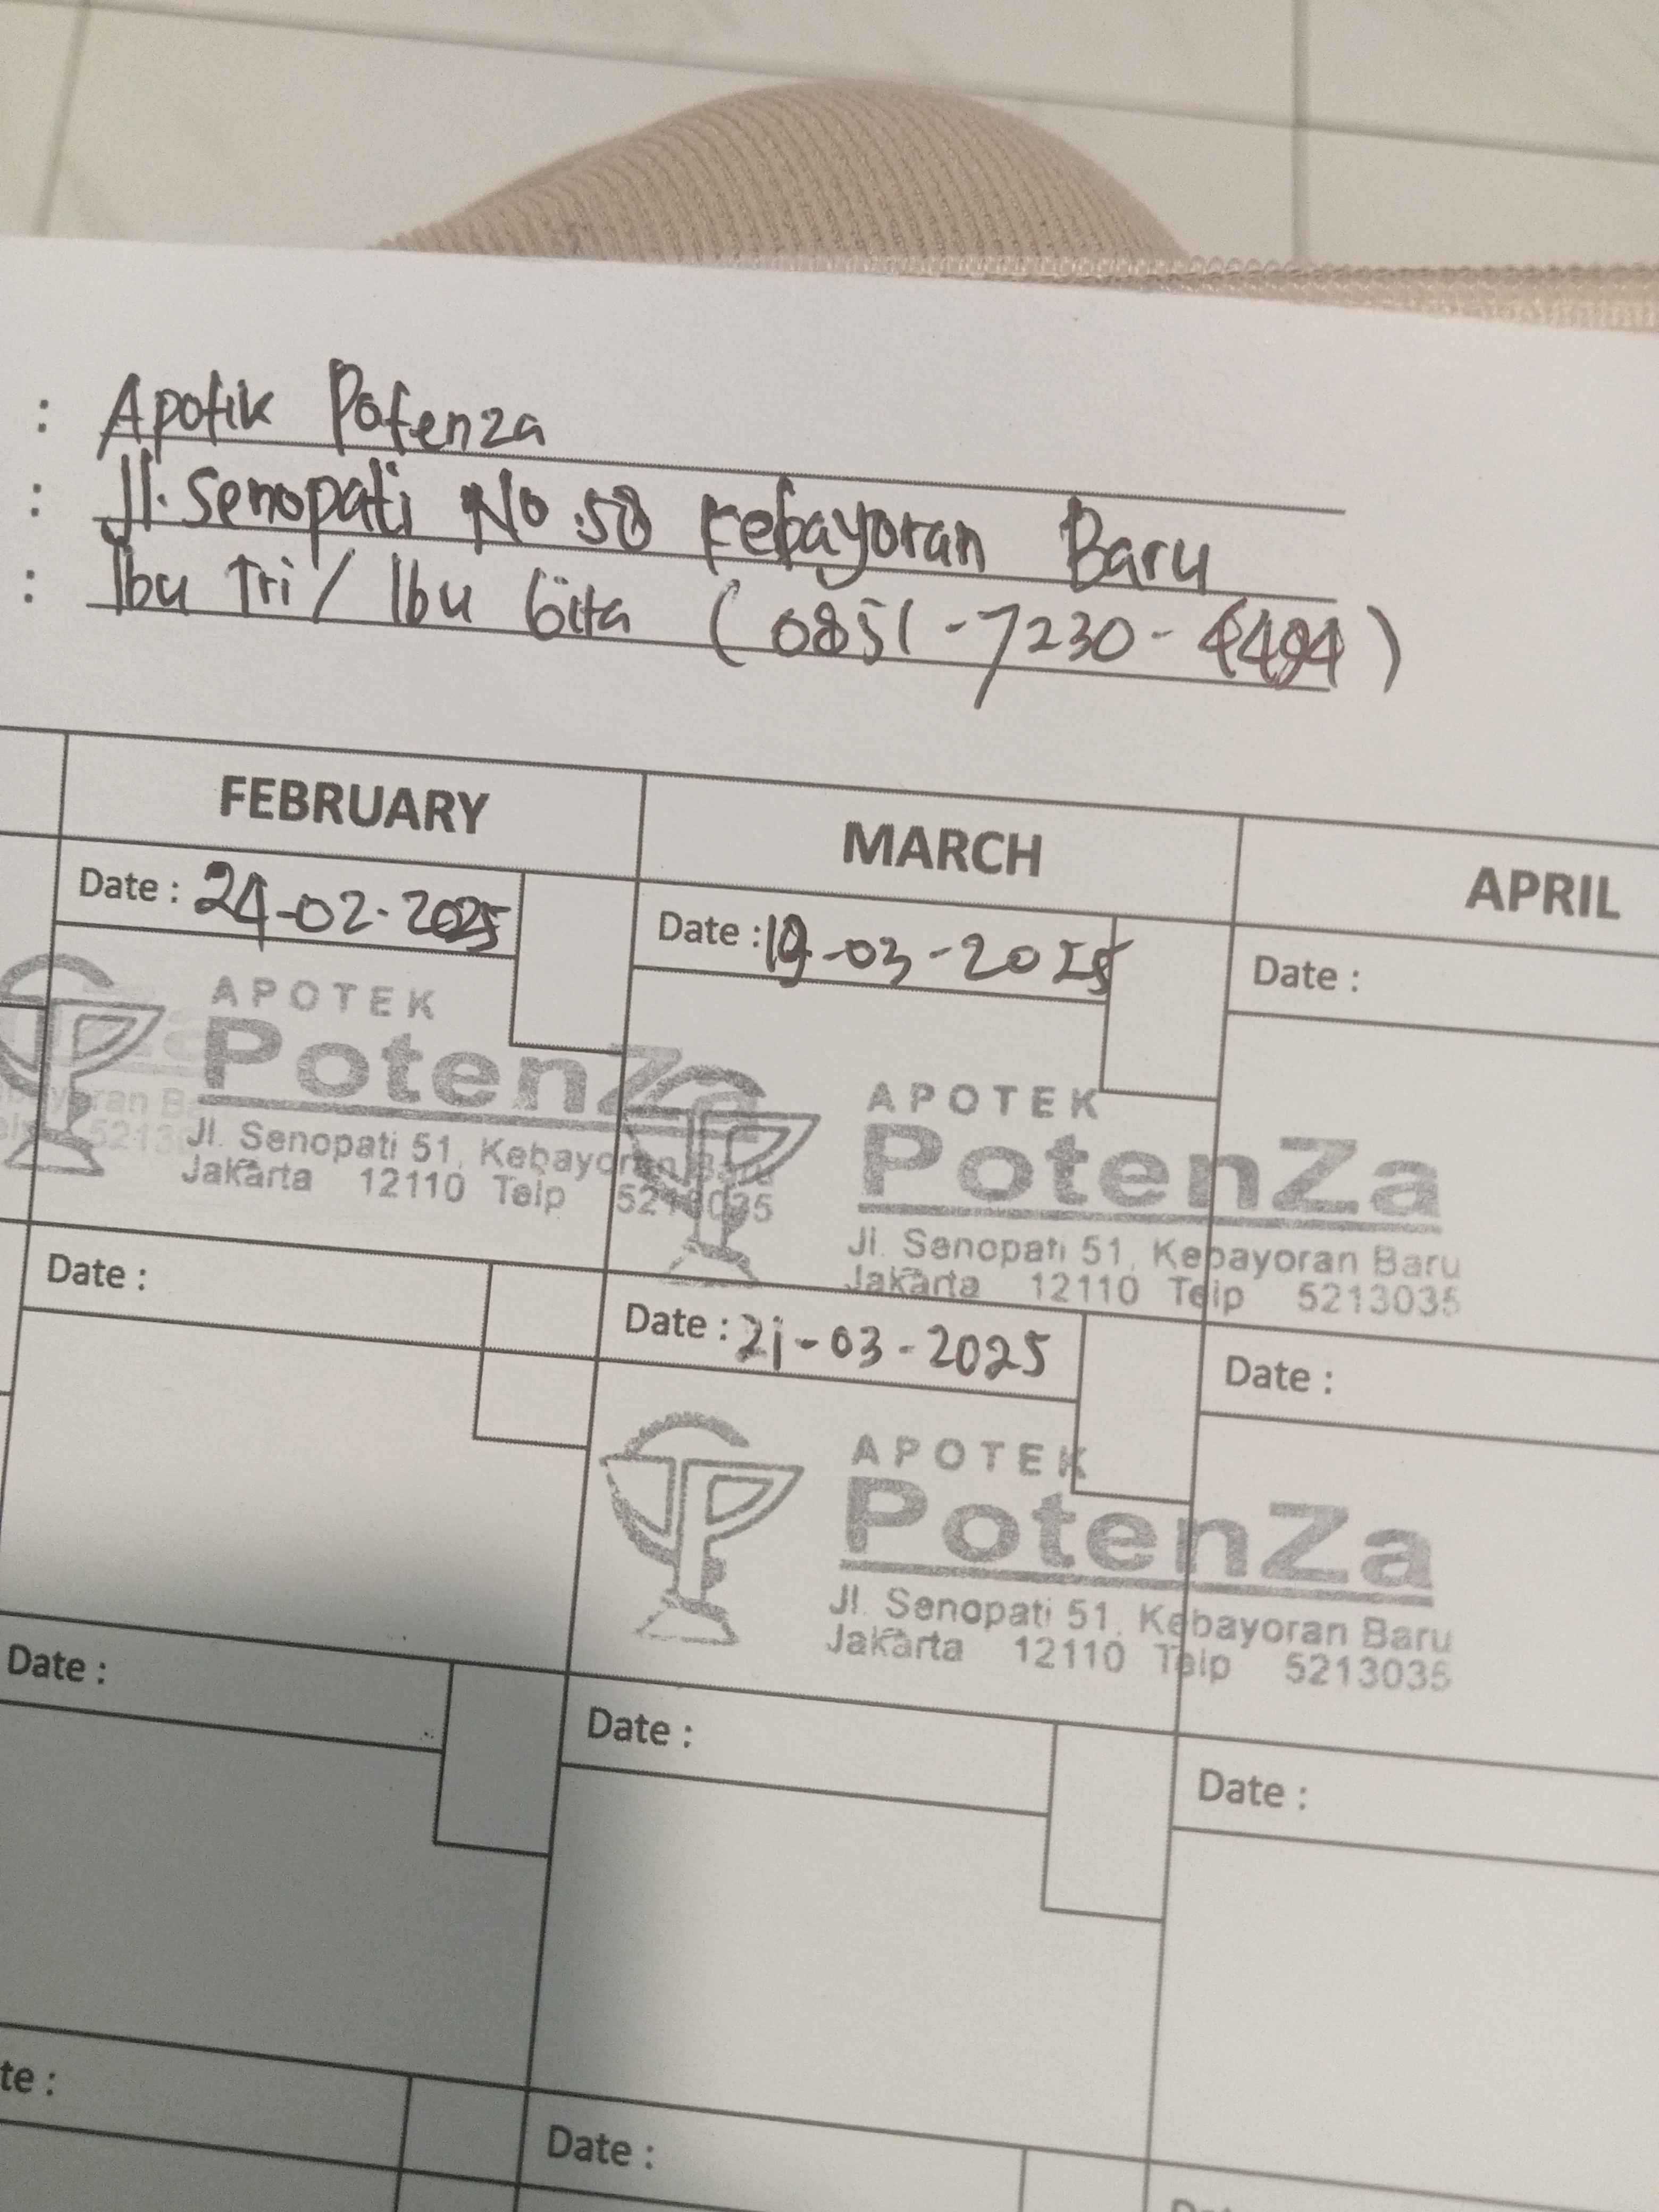 : Apotik Potenza
: Jl. Senopati No.58 Kebayoran Baru
: Ibu Tri / Ibu Gita (0851-7230-4494)
FEBRUARY
MARCH
APRIL
Date : 24-02-2025
Date : 19-03-2025
Date :
APOTEK
PotenZa
Jl. Senopati 51, Kebayoran Baru
Jakarta 12110 Telp 5213035
APOTEK
PotenZa
Jl. Senopati 51, Kebayoran Baru
Jakarta 12110 Telp 5213035
Date :
Date : 21-03-2025
Date :
APOTEK
PotenZa
Jl. Senopati 51, Kebayoran Baru
Jakarta 12110 Telp 5213035
Date :
Date :
Date :
te :
Date :